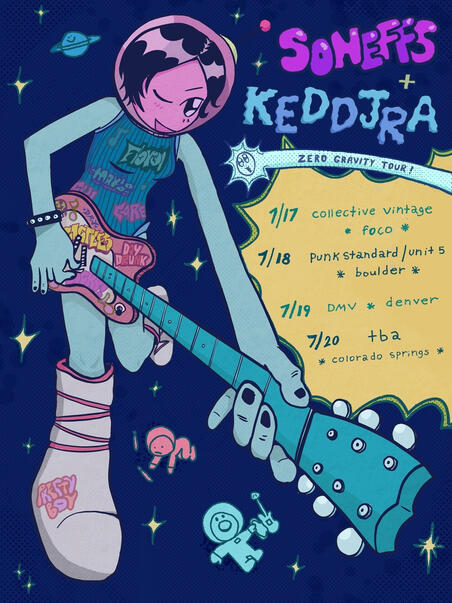 SOHEFFS
+
KEDDJRA
ZERO GRAVITY TOUR!
7/17 collective vintage
* foco *
7/18 Punk standard/unit 5
* boulder *
7/19 DMV * denver
7/20 tba
* colorado springs *
DAY
DRUNK
PRETTY
BOY